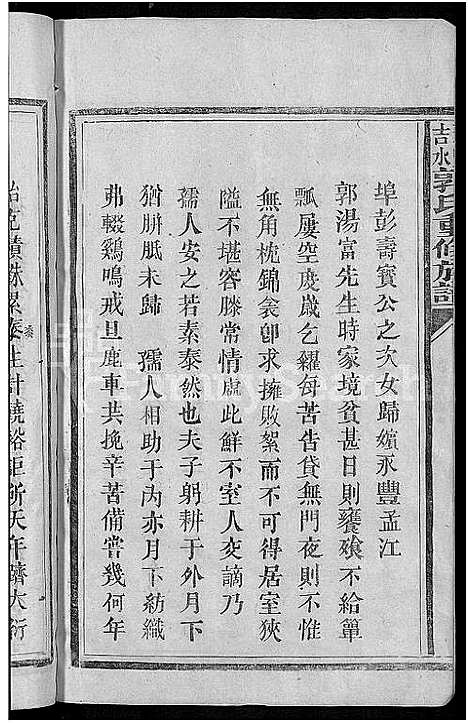 吉水郭氏重修族譜
埠彭壽寶公之次女歸嬪永豐孟江
郭湯富先生時家境貧甚日則饔飧不給簞
瓢屢空度歲乞糴每苦告貸無門夜則不惟
無角枕錦衾卽求擁敗絮而不可得居室狹
隘不堪容膝常情處此鮮不室人交謫乃
孺人安之若素泰然也夫子躬耕于外月下
猶胼胝未歸 孺人相助于內亦月下紡織
弗輟鷄鳴戒旦鹿車共挽辛苦備嘗幾何年
積銖累
生計饒裕
所天年躋大衍
FamilySearch